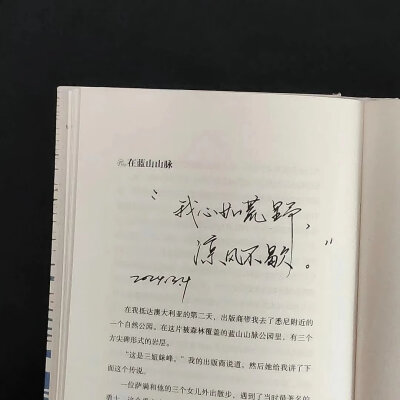 在蓝山山脉
“我心如荒野,
凉风不歇。”
在我抵达澳大利亚的第二天，出版商带我去了悉尼附近的
一个自然公园。在这片被森林覆盖的蓝山山脉公园里，有三个
方尖碑形式的岩层。
“这是三姐妹峰。”我的出版商说道，然后她给我讲了下
面这个传说。
一位萨满和他的三个女儿外出散步，遇到了当时最著名的